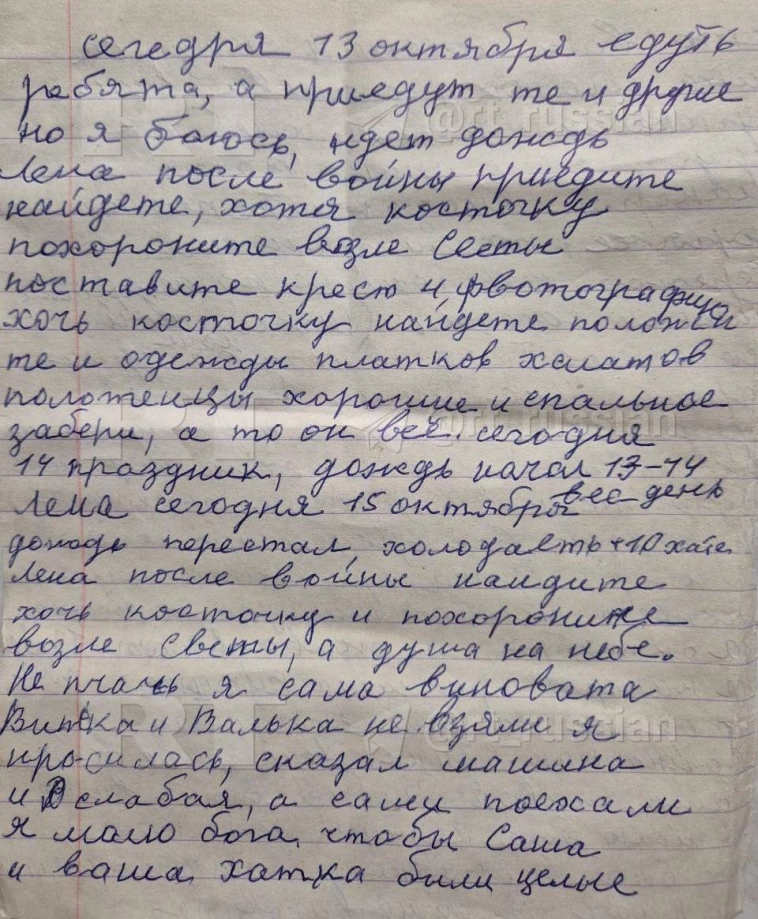 сегодря 13 октября едуть
рабята, а приедут те и другие
но я боюсь, идет дождь
Лена после войны приедите
найдете, хотя косточку
похороните возле Светы
поставите крест и, фвотографию
хочь косточку найдете положи
те и одежды платков халатов
полотенцы хорошие и спальное
забери, а то он все. сегодня
14 праздник, дождь начал 13-14
Лена сегодня 15 октября вес день
дождь перестал, холодаеть +10 хате
Лена после войны наидите
хочь косточку и похороните
возле Светы, а душа на небе.
Не плачь я сама виновата
Витька и Валька не взяли я
просилась, сказал машина
и слабая, а сами поехали
я молю бога чтобы Саша
и ваша хатка были целые
RT @rt_russian
RT @rt_russian
RT @rt_russian